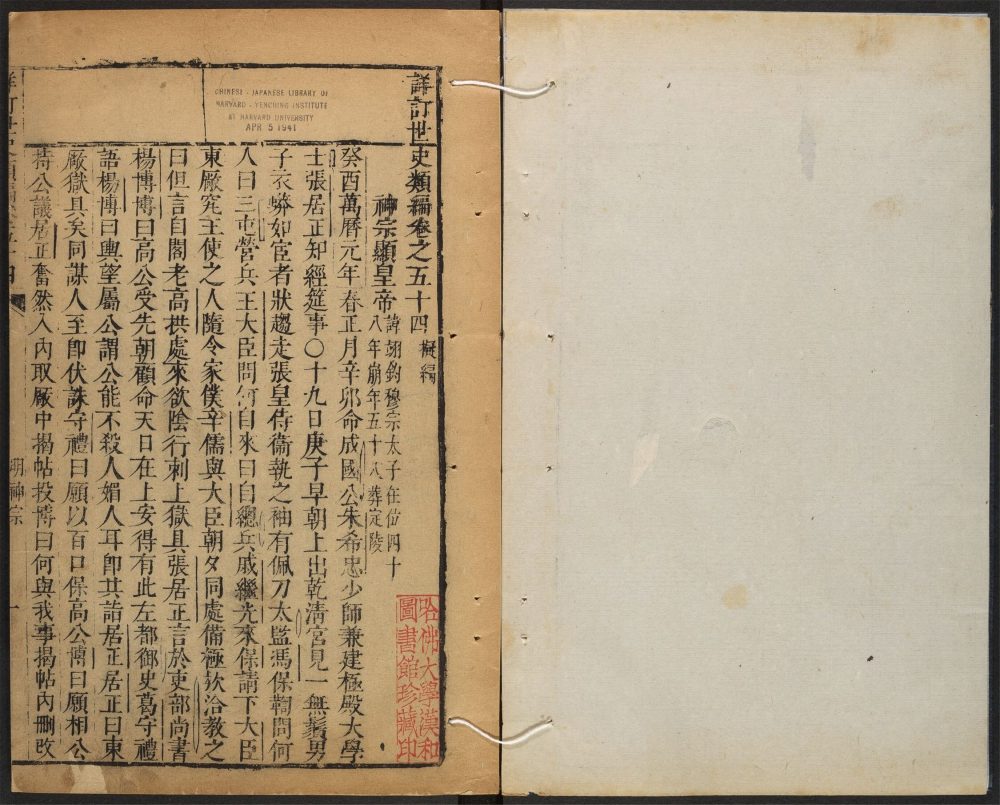 詳訂世史類編卷之五十四 擬編
神宗顯皇帝 諱翊鈞穆宗太子在位四十
八年崩年五十八葬定陵
癸酉萬曆元年春正月辛卯命成國公朱希忠少師兼建極殿大學
士張居正知經筵事〇十九日庚子早朝上出乾清宮見一無鬚男
子衣蟒如宦者狀趨走張皇侍衞執之袖有佩刀太監馮保鞫問何
人曰三屯營兵王大臣問何自來曰自總兵戚繼光來保請下大臣
東厰究主使之人隋令家僕辛儒與大臣朝夕同處備極欵洽教之
曰但言自閣老高拱處來欲陰行刺上獄具張居正言於吏部尚書
楊博博曰高公受先朝顧命天日在上安得有此左都御史葛守禮
語楊博曰輿望屬公謂公能不殺人媚人耳卽共詣居正居正曰東
厰獄具矣同謀人至卽伏誅守禮曰願以百口保高公博曰願相公
持公議居正奮然入內取厰中揭帖投博曰何與我事揭帖內刪改
明神宗
一
CHINESE - JAPANESE LIBRARY OF
HARVARD - YENCHING INSTITUTE
AT HARVARD UNIVERSITY
APR 5 1941
哈佛大學漢和
圖書館珍藏印